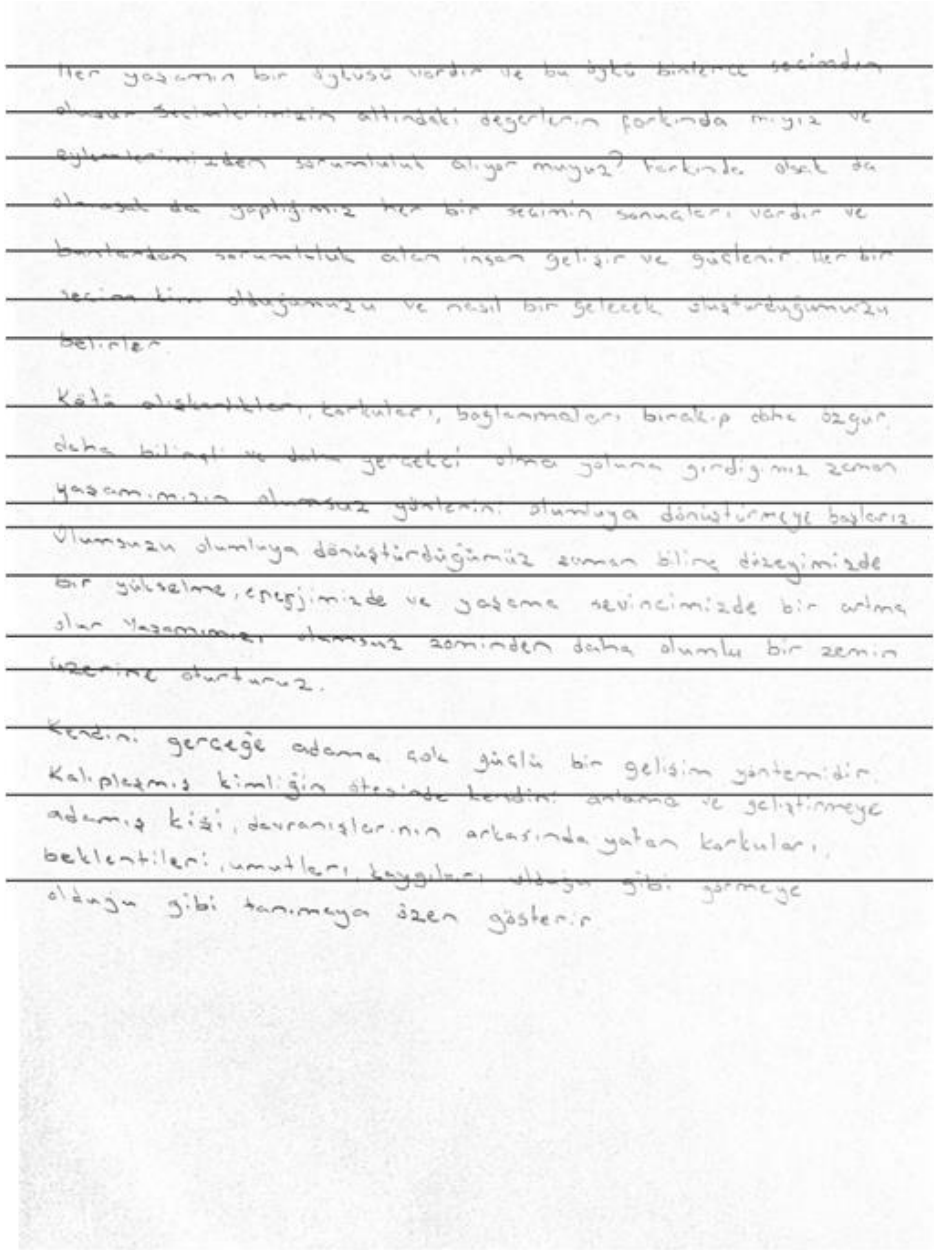 Her yaşamın bir öyküsü vardır ve bu öykü binlerce seçimden
oluşur Seçimlerimizin altındaki değerlerin farkında mıyız ve
eylemlerimizden sorumluluk alıyor muyuz? Farkında olsak da
olmasak da yaptığımız her bir seçimin sonuçları vardır ve
bunlardan sorumluluk alan insan gelişir ve güçlenir. Her bir
seçim kim olduğumuzu ve nasıl bir gelecek oluşturduğumuzu
belirler.
Kötü alışkanlıkları, korkuları, bağlanmaları bırakıp daha özgür,
daha bilinçli ve daha gerçekçi olma yoluna girdiğimiz zaman
yaşamımızın olumsuz yönlerini olumluya dönüştürmeye başlarız.
Olumsuzu olumluya dönüştürdüğümüz zaman bilinç düzeyimizde
bir yükselme, enerjimizde ve yaşama sevincimizde bir artma
olur Yaşamımızı olumsuz zeminden daha olumlu bir zemin
üzerine oturturuz.
Kendini gerçeğe adama çok güçlü bir gelişim yöntemidir.
Kalıplaşmış kimliğin ötesinde kendini anlama ve geliştirmeye
adamış kişi, davranışlarının arkasında yatan korkuları,
beklentileri, umutları, kaygıları olduğu gibi görmeye
olduğu gibi tanımaya özen gösterir